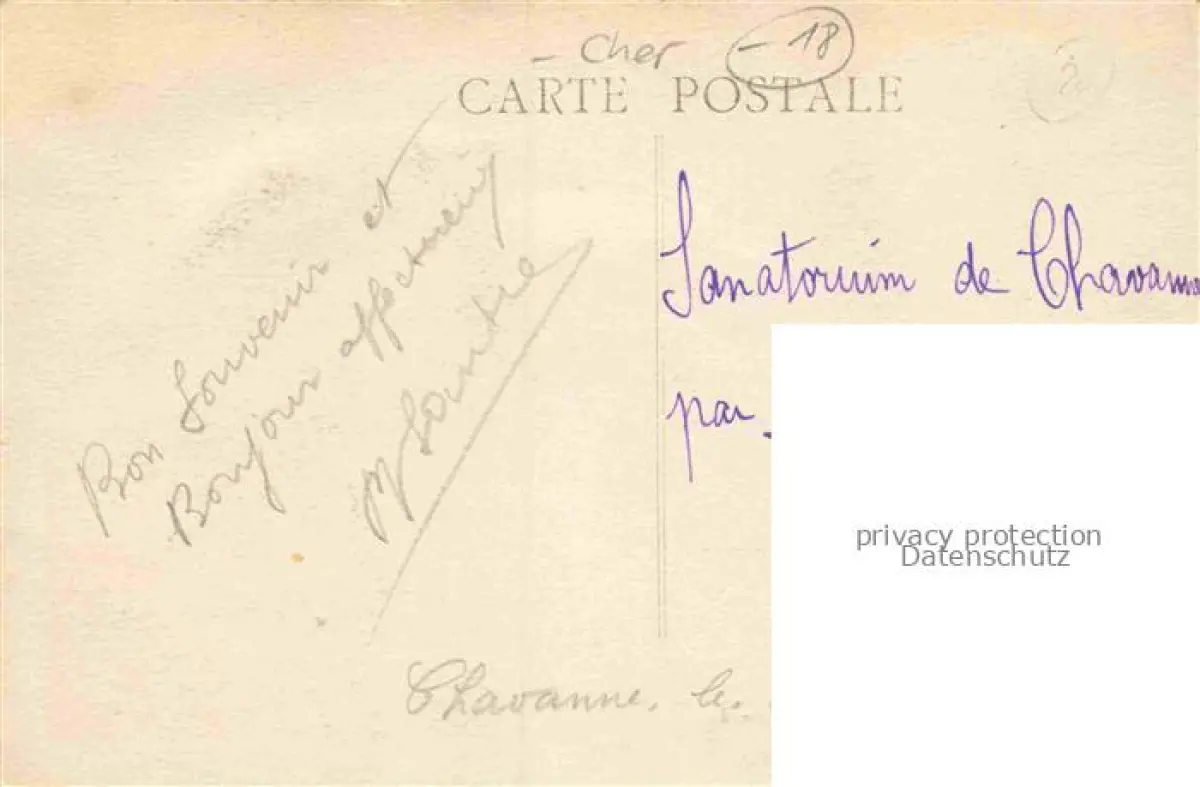 - Cher - 18
2
CARTE POSTALE
Bon Souvenir et
Bonjour affectueux
Sanatorium de Chavanne
par
privacy protection
Datenschutz
Chavanne, le.